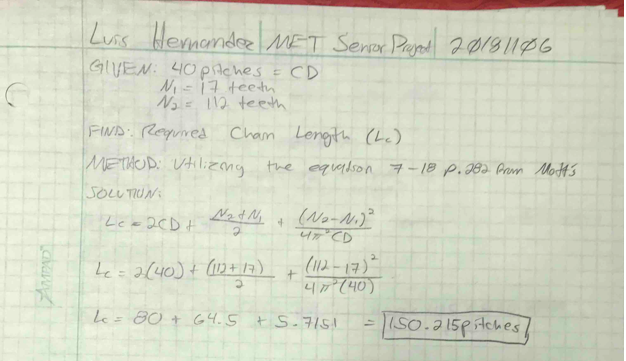 Luis Hernandez MET Senior Project 20181106
GIVEN: 40 pitches = CD
N₁ = 17 teeth
N₂ = 112 teeth
FIND: Required Chain Length (Lc)
METHOD: Utilizing the equation 7-18 p.282 from Mott's
SOLUTION:
Lc = 2CD + (N₂+N₁)/2 + (N₂-N₁)²/4π²CD
Lc = 2(40) + (112+17)/2 + (112-17)²/4π²(40)
Lc = 80 + 64.5 + 5.7151 = 150.215 pitches
AMPAD